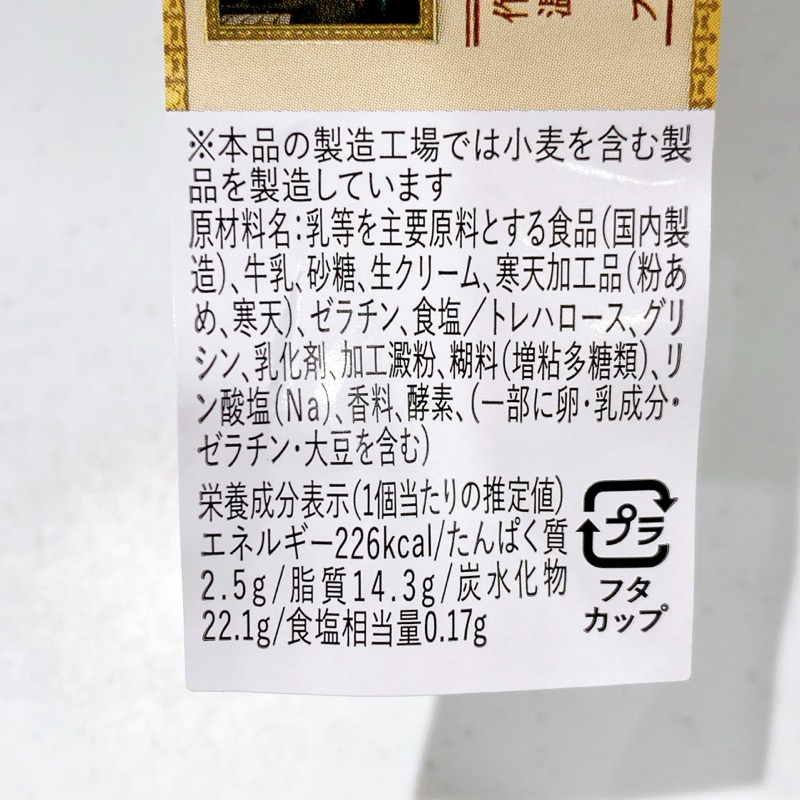 ※本品の製造工場では小麦を含む製
品を製造しています
原材料名:乳等を主要原料とする食品(国内製
造)、牛乳、砂糖、生クリーム、寒天加工品(粉あ
め、寒天)、ゼラチン、食塩/トレハロース、グリ
シン、乳化剤、加工澱粉、糊料(増粘多糖類)、リ
ン酸塩(Na)、香料、酵素、(一部に卵・乳成分・
ゼラチン・大豆を含む)
栄養成分表示(1個当たりの推定値)
エネルギー226kcal/たんぱく質
2.5g/脂質14.3g/炭水化物
22.1g/食塩相当量0.17g
プラ
フタ
カップ